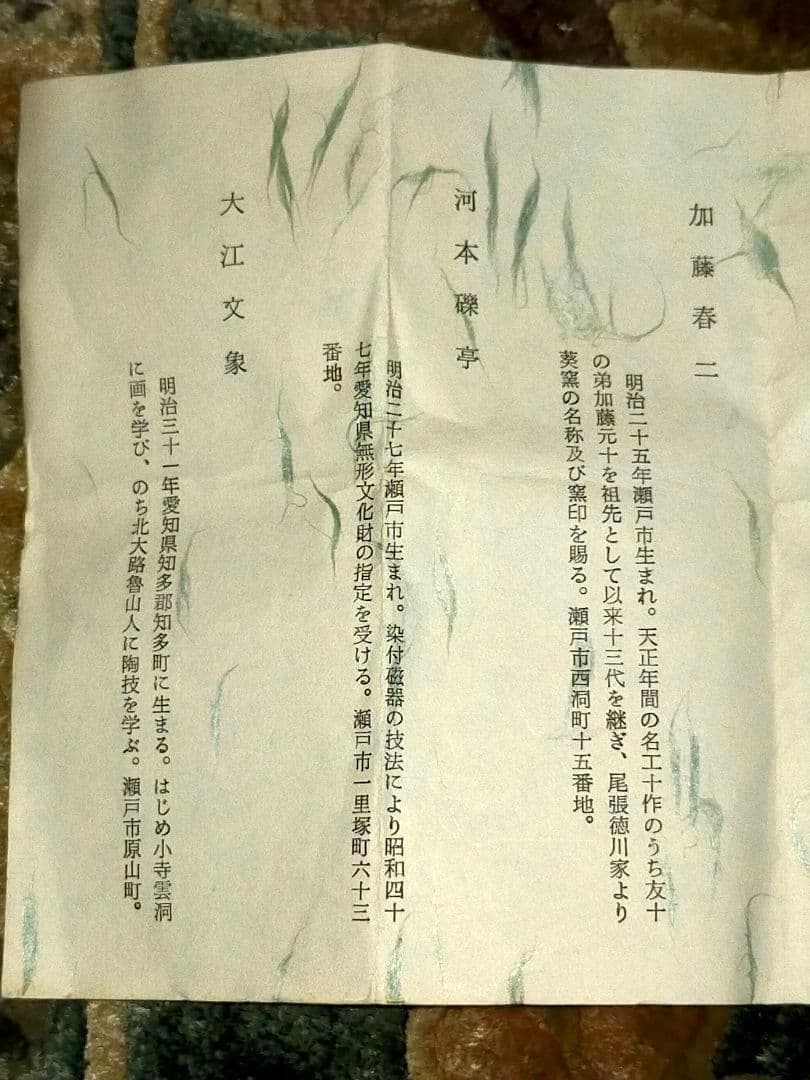 加藤春二
明治二十五年瀬戸市生まれ。天正年間の名工十作のうち友十
の弟加藤元十を祖先として以来十三代を継ぎ、尾張徳川家より
葵窯の名称及び窯印を賜る。瀬戸市西洞町十五番地。
河本礫亭
明治二十七年瀬戸市生まれ。染付磁器の技法により昭和四十
七年愛知県無形文化財の指定を受ける。瀬戸市一里塚町六十三
番地。
大江文象
明治三十一年愛知県知多郡知多町に生まる。はじめ小寺雲洞
に画を学び、のち北大路魯山人に陶技を学ぶ。瀬戸市原山町。